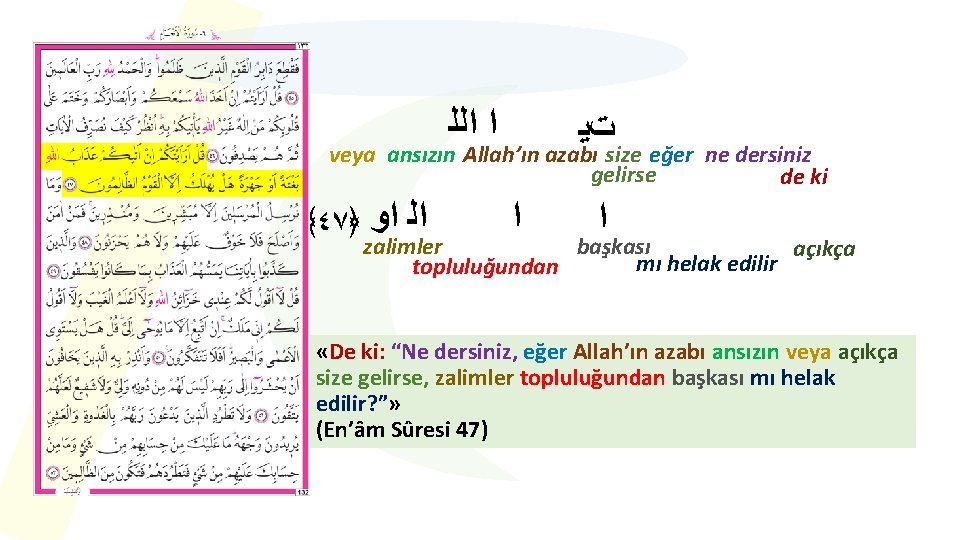 ٦- سورة الأنعام
١٣٢
فَقُطِعَ دَابِرُ الْقَوْمِ الَّذِينَ ظَلَمُوا وَالْحَمْدُ لِلَّهِ رَبِّ الْعَالَمِينَ
﴿٤٥﴾ قُلْ اَرَاَيْتُمْ اِنْ اَخَذَ اللّٰهُ سَمْعَكُمْ وَاَبْصَارَكُمْ وَخَتَمَ عَلٰى
قُلُوبِكُمْ مَنْ اِلٰهٌ غَيْرُ اللّٰهِ يَاْتِيكُمْ بِهِ اُنْظُرْ كَيْفَ نُصَرِّفُ الْاٰيَاتِ
ثُمَّ هُمْ يَصْدِفُونَ ﴿٤٦﴾ قُلْ اَرَاَيْتَكُمْ اِنْ اَتٰيكُمْ عَذَابُ اللّٰهِ
بَغْتَةً اَوْ جَهْرَةً هَلْ يُهْلَكُ اِلَّا الْقَوْمُ الظَّالِمُونَ ﴿٤٧﴾ وَمَا
نُرْسِلُ الْمُرْسَلِينَ اِلَّا مُبَشِّرِينَ وَمُنْذِرِينَ فَمَنْ اٰمَنَ
وَاَصْلَحَ فَلَا خَوْفٌ عَلَيْهِمْ وَلَا هُمْ يَحْزَنُونَ ﴿٤٨﴾ وَالَّذِينَ
كَذَّبُوا بِاٰيَاتِنَا يَمَسُّهُمُ الْعَذَابُ بِمَا كَانُوا يَفْسُقُونَ ﴿٤٩﴾
قُلْ لَا اَقُولُ لَكُمْ عِنْدِي خَزَائِنُ اللّٰهِ وَلَا اَعْلَمُ الْغَيْبَ وَلَا اَقُولُ
لَكُمْ اِنِّي مَلَكٌ اِنْ اَتَّبِعُ اِلَّا مَا يُوحٰى اِلَيَّ قُلْ هَلْ يَسْتَوِي
الْاَعْمٰى وَالْبَصِيرُ اَفَلَا تَتَفَكَّرُونَ ﴿٥٠﴾ وَاَنْذِرْ بِهِ الَّذِينَ يَخَافُونَ
اَنْ يُحْشَرُوا اِلٰى رَبِّهِمْ لَيْسَ لَهُمْ مِنْ دُونِهِ وَلِيٌّ وَلَا شَفِيعٌ لَعَلَّهُمْ
يَتَّقُونَ ﴿٥١﴾ وَلَا تَطْرُدِ الَّذِينَ يَدْعُونَ رَبَّهُمْ بِالْغَدٰوةِ وَالْعَشِيِّ
يُرِيدُونَ وَجْهَهُ مَا عَلَيْكَ مِنْ حِسَابِهِمْ مِنْ شَيْءٍ وَمَا مِنْ
حِسَابِكَ عَلَيْهِمْ مِنْ شَيْءٍ فَتَطْرُدَهُمْ فَتَكُونَ مِنَ الظَّالِمِينَ ﴿٥٢﴾
132
ﺗﻴ ﺍ ﺍﻟﻠ
veya ansızın Allah’ın azabı size eğer ne dersiniz
gelirse de ki
ﺍ ﺍ ﺍﻟ ﺍﻭ ﴿٤٧﴾
zalimler başkası açıkça
topluluğundan mı helak edilir
«De ki: “Ne dersiniz, eğer Allah’ın azabı ansızın veya açıkça
size gelirse, zalimler topluluğundan başkası mı helak
edilir?”»
(En’âm Sûresi 47)